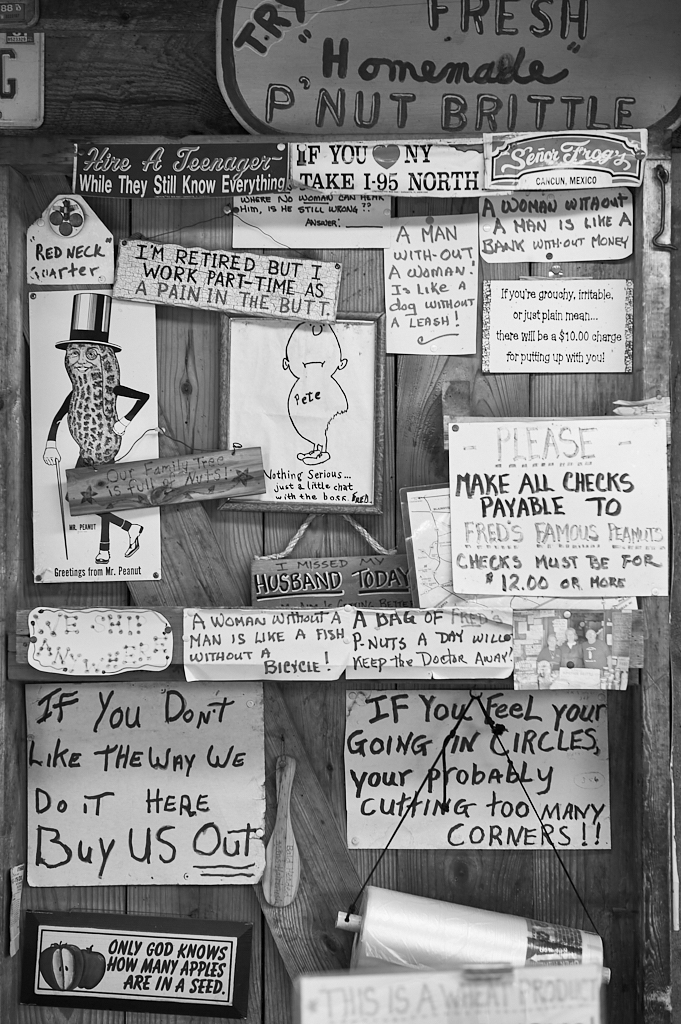 TRY
FRESH
"Homemade"
P'NUT BRITTLE
Hire A Teenager-
While They Still Know Everything
IF YOU NY
TAKE I-95 NORTH
Señor Frog's
CANCUN, MEXICO
WHERE NO WOMAN CAN HEAR
HIM, IS HE STILL WRONG??
ANSWER:
A WOMAN WITHOUT
A MAN IS LIKE A
BANK WITHOUT MONEY
"RED NECK"
Quarter.
A MAN
WITH-OUT
A WOMAN!
Is Like a
dog without
A LEASH!
I'M RETIRED BUT I
WORK PART-TIME AS
A PAIN IN THE BUTT.
If you're grouchy, irritable,
or just plain mean...
there will be a $10.00 charge
for putting up with you!
Pete
Nothing Serious...
just a little chat
with the boss. FRED.
Our Family Tree
is full of Nuts!
MR. PEANUT
Greetings from Mr. Peanut
- PLEASE -
MAKE ALL CHECKS
PAYABLE TO
FRED'S FAMOUS PEANUTS
CHECKS MUST BE FOR
$12.00 OR MORE
I MISSED MY
HUSBAND TODAY
A WOMAN WITHOUT A
MAN IS LIKE A FISH
WITHOUT A
BICYCLE!
A BAG OF FRED'S
P-NUTS A DAY WILL
KEEP the DOCTOR AWAY!
IF YOU DON'T
LIKE THE WAY WE
DO IT HERE
Buy US Out
IF YOU FEEL your
GOING IN CIRCLES,
your probably
CUTTING TOO MANY
CORNERS!!
ONLY GOD KNOWS
HOW MANY APPLES
ARE IN A SEED.
THIS IS A WHEAT PRODUCT